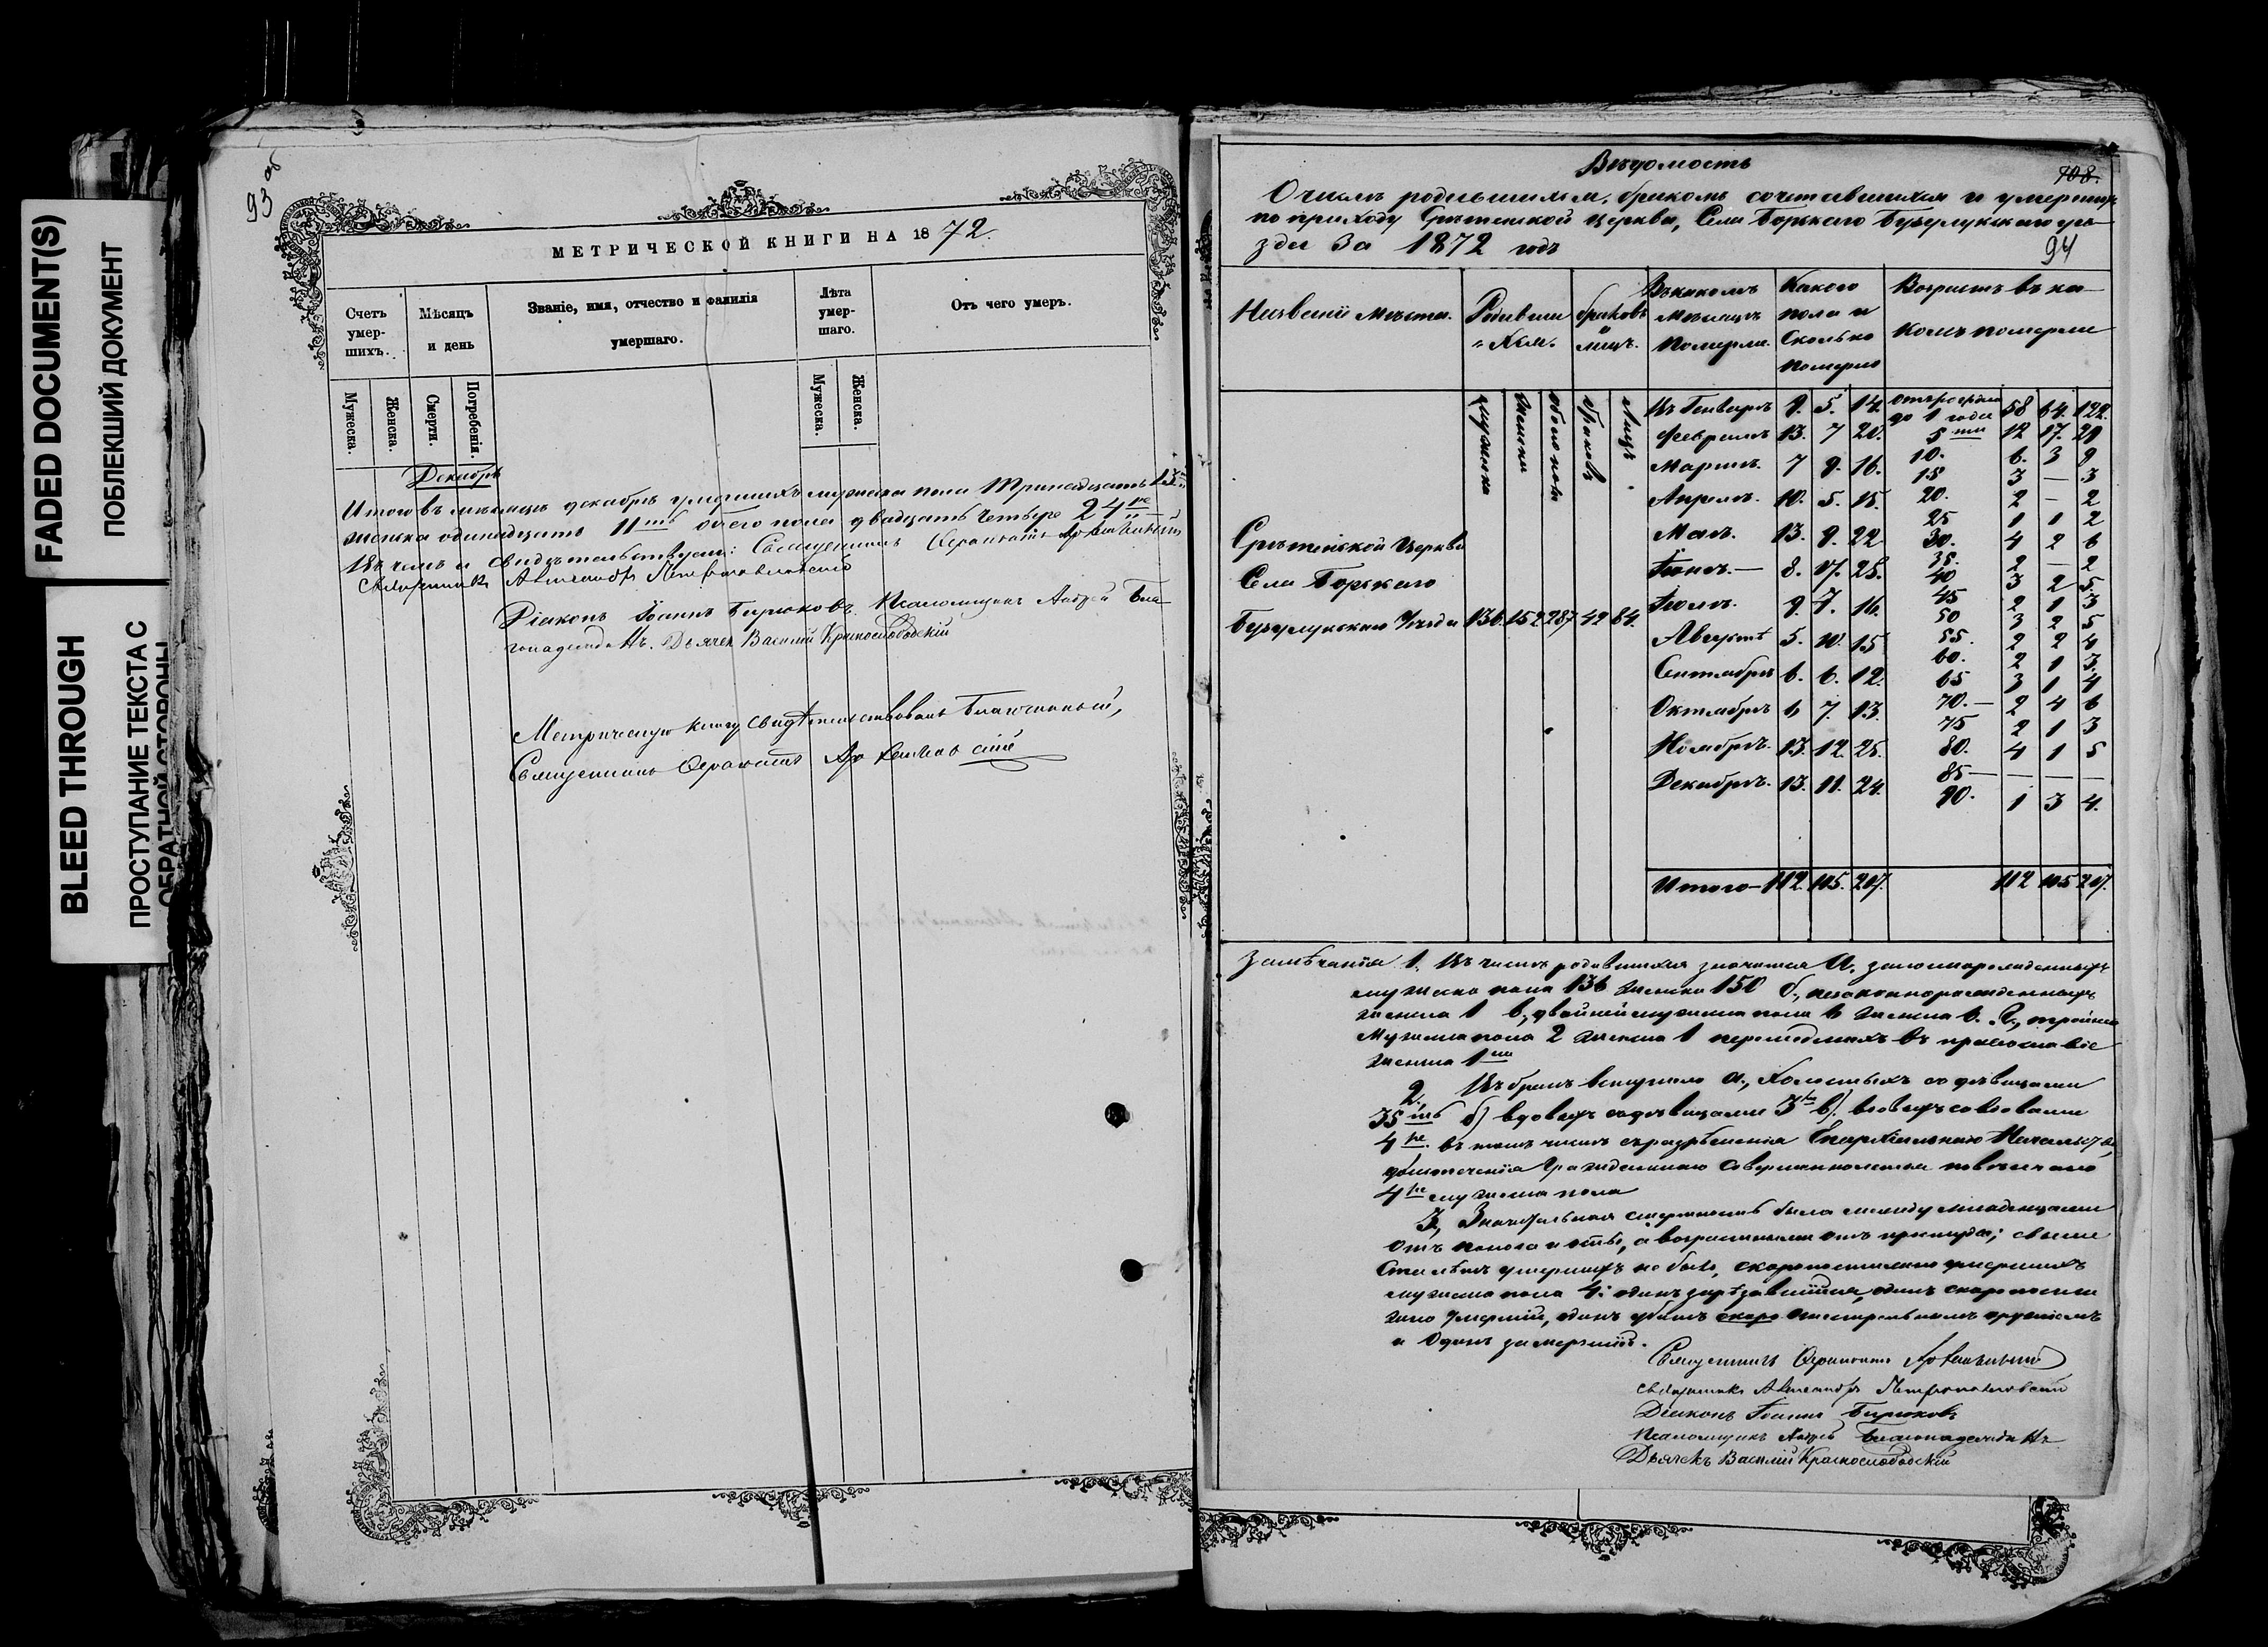 FADED DOCUMENT(S)
ПОБЛЕКШИЙ ДОКУМЕНТ
BLEED THROUGH
ПРОСТУПАНИЕ ТЕКСТА С
ОБРАТНОЙ СТОРОНЫ
93 об
МЕТРИЧЕСКОЙ КНИГИ НА 1872.
Счетъ умер-шихъ.
Мѣсяцъ и день
Званіе, имя, отчество и фамилія умершаго.
Лѣта умер-шаго.
Отъ чего умеръ.
Мужеска.
Женска.
Смерти.
Погребенія.
Мужеска.
Женска.
Декабрь
Итого въ мѣсяцѣ декабрѣ умершихъ мужеска пола тринадцать 13
женска одинадцать 11ть обоего пола двадцать четыре 24ре
Въ чемъ и свидѣтельствуемъ: Священникъ
Священникъ Александръ Петропавловскій
Діаконъ Іоаннъ Бирюковъ. Псаломщикъ Андрей Бла-
гонадеждинъ. Дьячекъ Василій Краснослободскій
Метрическую книгу свидѣтельствовалъ Благочинный,
Священникъ
Вѣдомость
108.
О числѣ родившихся, бракомъ сочетавшихся и умершихъ
по приходу Срѣтенской церкви, Села Борскаго Бузулукскаго уѣ-
зда за 1872 годъ
94
Названіе мѣста.
Родивши-хся.
браковъ и лицъ.
Въ какомъ мѣсяцѣ померли.
Какого пола и сколько померло
Возрастъ въ ка-
комъ померли
мужеска
женска
обоего пола
браковъ
Лицъ.
Въ Генварѣ 9. 5. 14.
Февралѣ 13. 7 20.
Мартѣ. 7 9. 16.
Апрелѣ. 10. 5. 15.
Маѣ. 13. 9. 22.
Іюнѣ.— 8. 17. 25.
Іюлѣ. 9. 7. 16.
Августѣ 5. 10. 15
Сентябрѣ 6. 6. 12.
Октябрѣ 6 7. 13.
Ноябрѣ. 13. 12. 25.
Декабрѣ. 13. 11. 24.
Итого— 112. 105. 217.
отъ рожденія
до 1 года 58 64. 122.
5ти 12 17. 29
10. 6. 3 9
15 3 — 3
20. 2 — 2
25 1 1 2
30. 4 2 6
35. 2 — 2
40 3 2 5.
45 2 1 3
50 3 2 5
55. 2 2 4
60. 2 1 3.
65 3 1 4
70.— 2 4 6
75 2 1 3
80. 4 1 5
85 — — — —
90. 1 3 4.
112 105 217.
Срѣтенской Церкви
Села Борскаго
Бузулукскаго Уѣзда 136. 152 287 42 84.
Замѣчанія 1. Въ числѣ родившихся значится А, законнорожденныхъ
мужеска пола 136 женска 150 б., незаконнорожденныхъ
женска 1 в., двойней мужеска пола 6 женска 6. Г., тройней
мужеска пола 2 женска 1 перешедшихъ въ православіе
женска 1на
2. Въ бракъ вступило а., Холостыхъ съ дѣвицами
35ть б) вдовцъ съ дѣвицами 3 в). вдовцъ со вдовами
4ре. въ томъ числѣ съ разрѣшенія Епархіальнаго Начальства,
до истеченія гражданскаго совершеннолетія повѣнчано
4ре мужеска пола
3, Значительная смертность была между младенцами
Отъ поноса и оспы, а возрастными отъ простуды; свыше
Ста лѣтъ умершихъ не было, скоропостижно умершихъ
мужеска пола 4: одинъ зарѣзавшійся, одинъ скоропости
жно умершій, одинъ убитъ огнестрѣльнымъ орудіемъ
и Одинъ замерзшій.
Священникъ
Священникъ Александръ Петропавловскій
Діаконъ Іоаннъ Бирюковъ
Псаломщикъ Андрей Благонадеждинъ
Дьячекъ Василій Краснослободскій